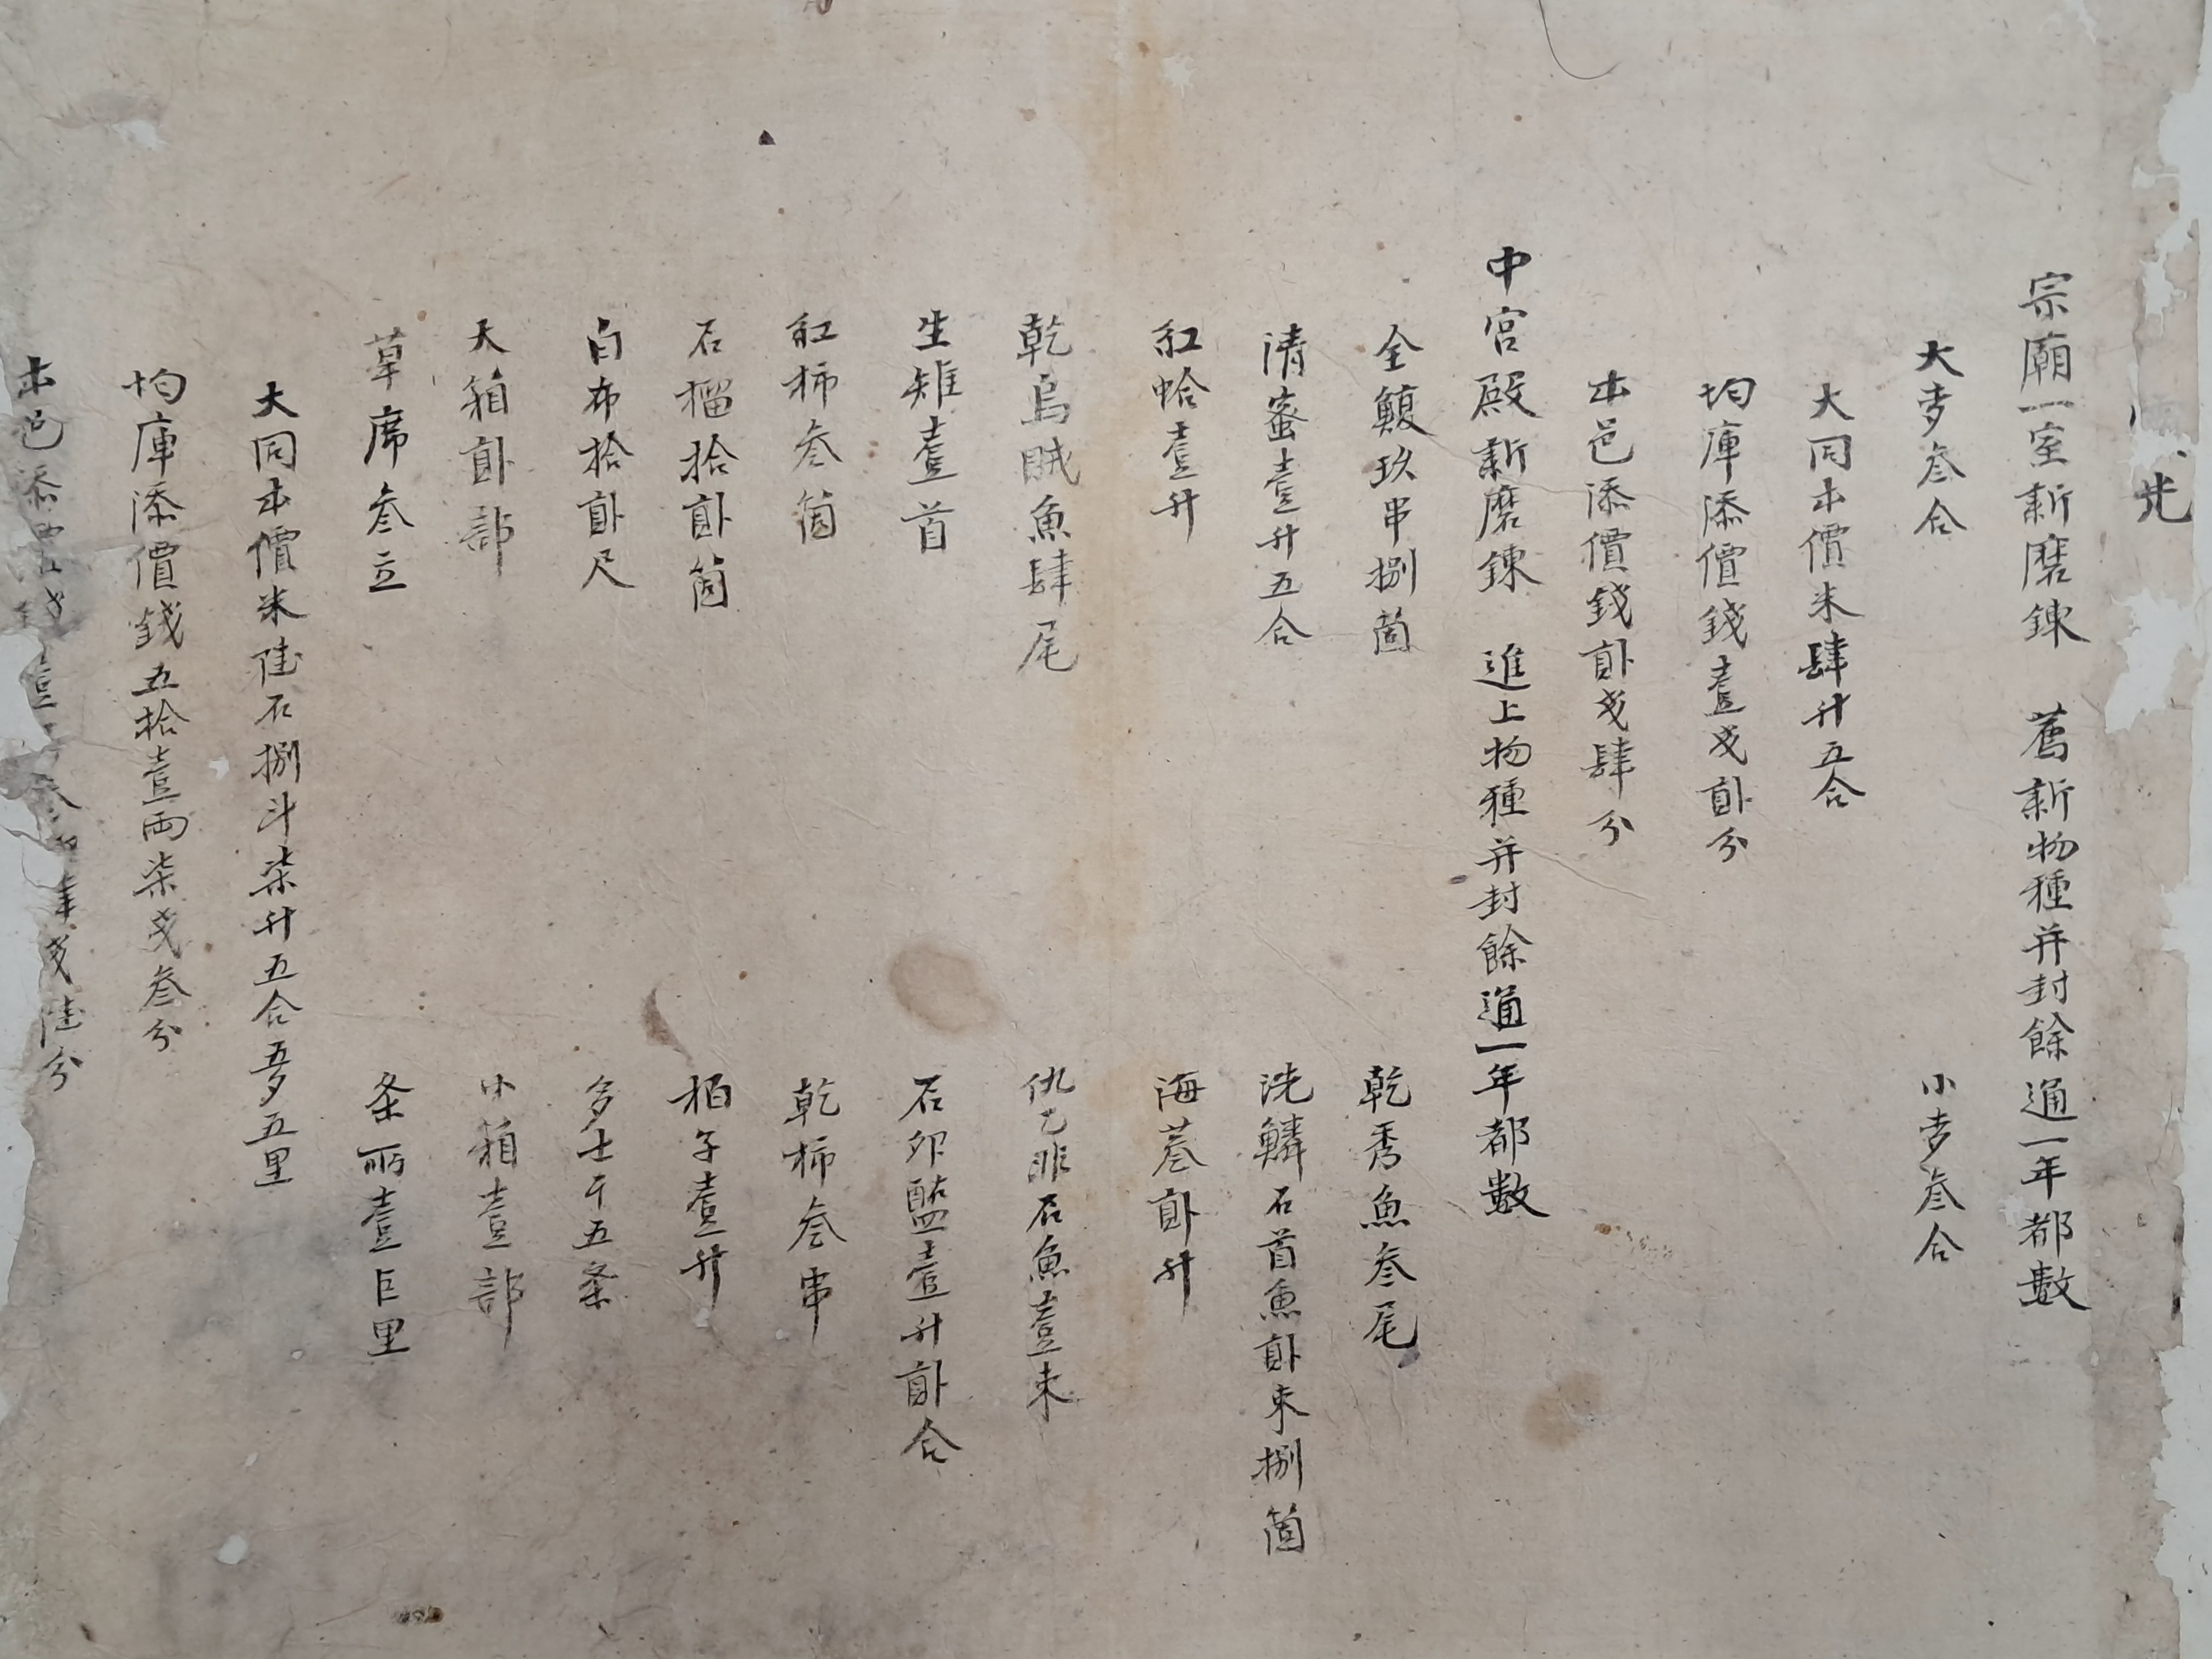 宗廟一室新磨鍊 舊新物種并封餘通一年都數
大麥叁合 小麥叁合
大同本價米肆升五合
均庫添價錢壹戔貳分
本邑添價錢貳戔肆分
中宮殿新磨鍊 進上物種并封餘通一年都數
全鰒玖串捌箇 乾秀魚叁尾
清蜜壹升五合 洗鱗石首魚貳束捌箇
紅蛤壹升 海蔘貳升
乾烏賊魚肆尾 仇乙非石魚壹束
生雉壹首 石卵醢壹升貳合
紅柿叁箇 乾柿叁串
石榴拾貳箇 栢子壹升
白布拾貳尺 多士亇五条
大箱貳部 小箱壹部
草席叁立 条所壹巨里
大同本價米陸石捌斗柒升五合五夕五里
均庫添價錢五拾壹兩柒戔叁分
本邑添價錢壹 叁 戔陸分